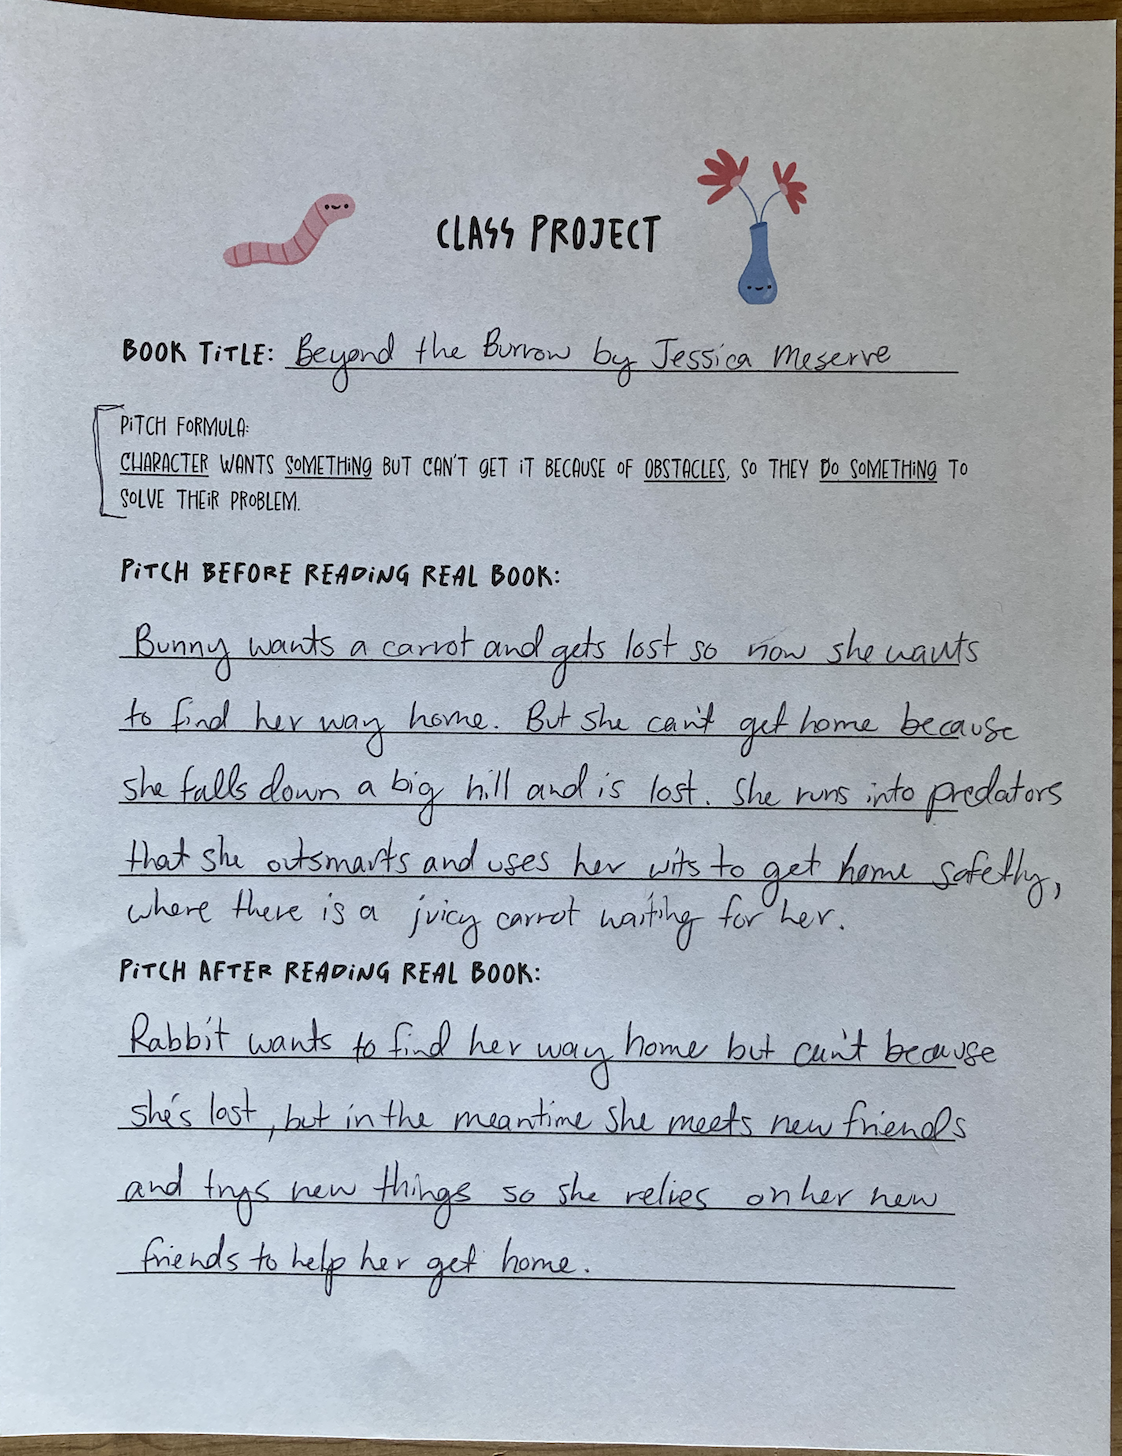 CLASS PROJECT
BOOK TiTLE: Beyond the Burrow by Jessica Meserve
PiTCH FORMULA:
CHARACTER WANTS SOMETHiNG BUT CAN'T GET iT BECAUSE OF OBSTACLES, SO THEY DO SOMETHiNG TO
SOLVE THEiR PROBLEM.
PiTCH BEFORE READiNG REAL BOOK:
Bunny wants a carrot and gets lost so now she wants
to find her way home. But she can't get home because
she falls down a big hill and is lost. She runs into predators
that she outsmarts and uses her wits to get home safetly,
where there is a juicy carrot waiting for her.
PiTCH AFTER READiNG REAL BOOK:
Rabbit wants to find her way home but can't because
she's lost, but in the meantime she meets new friends
and trys new things so she relies on her new
friends to help her get home.